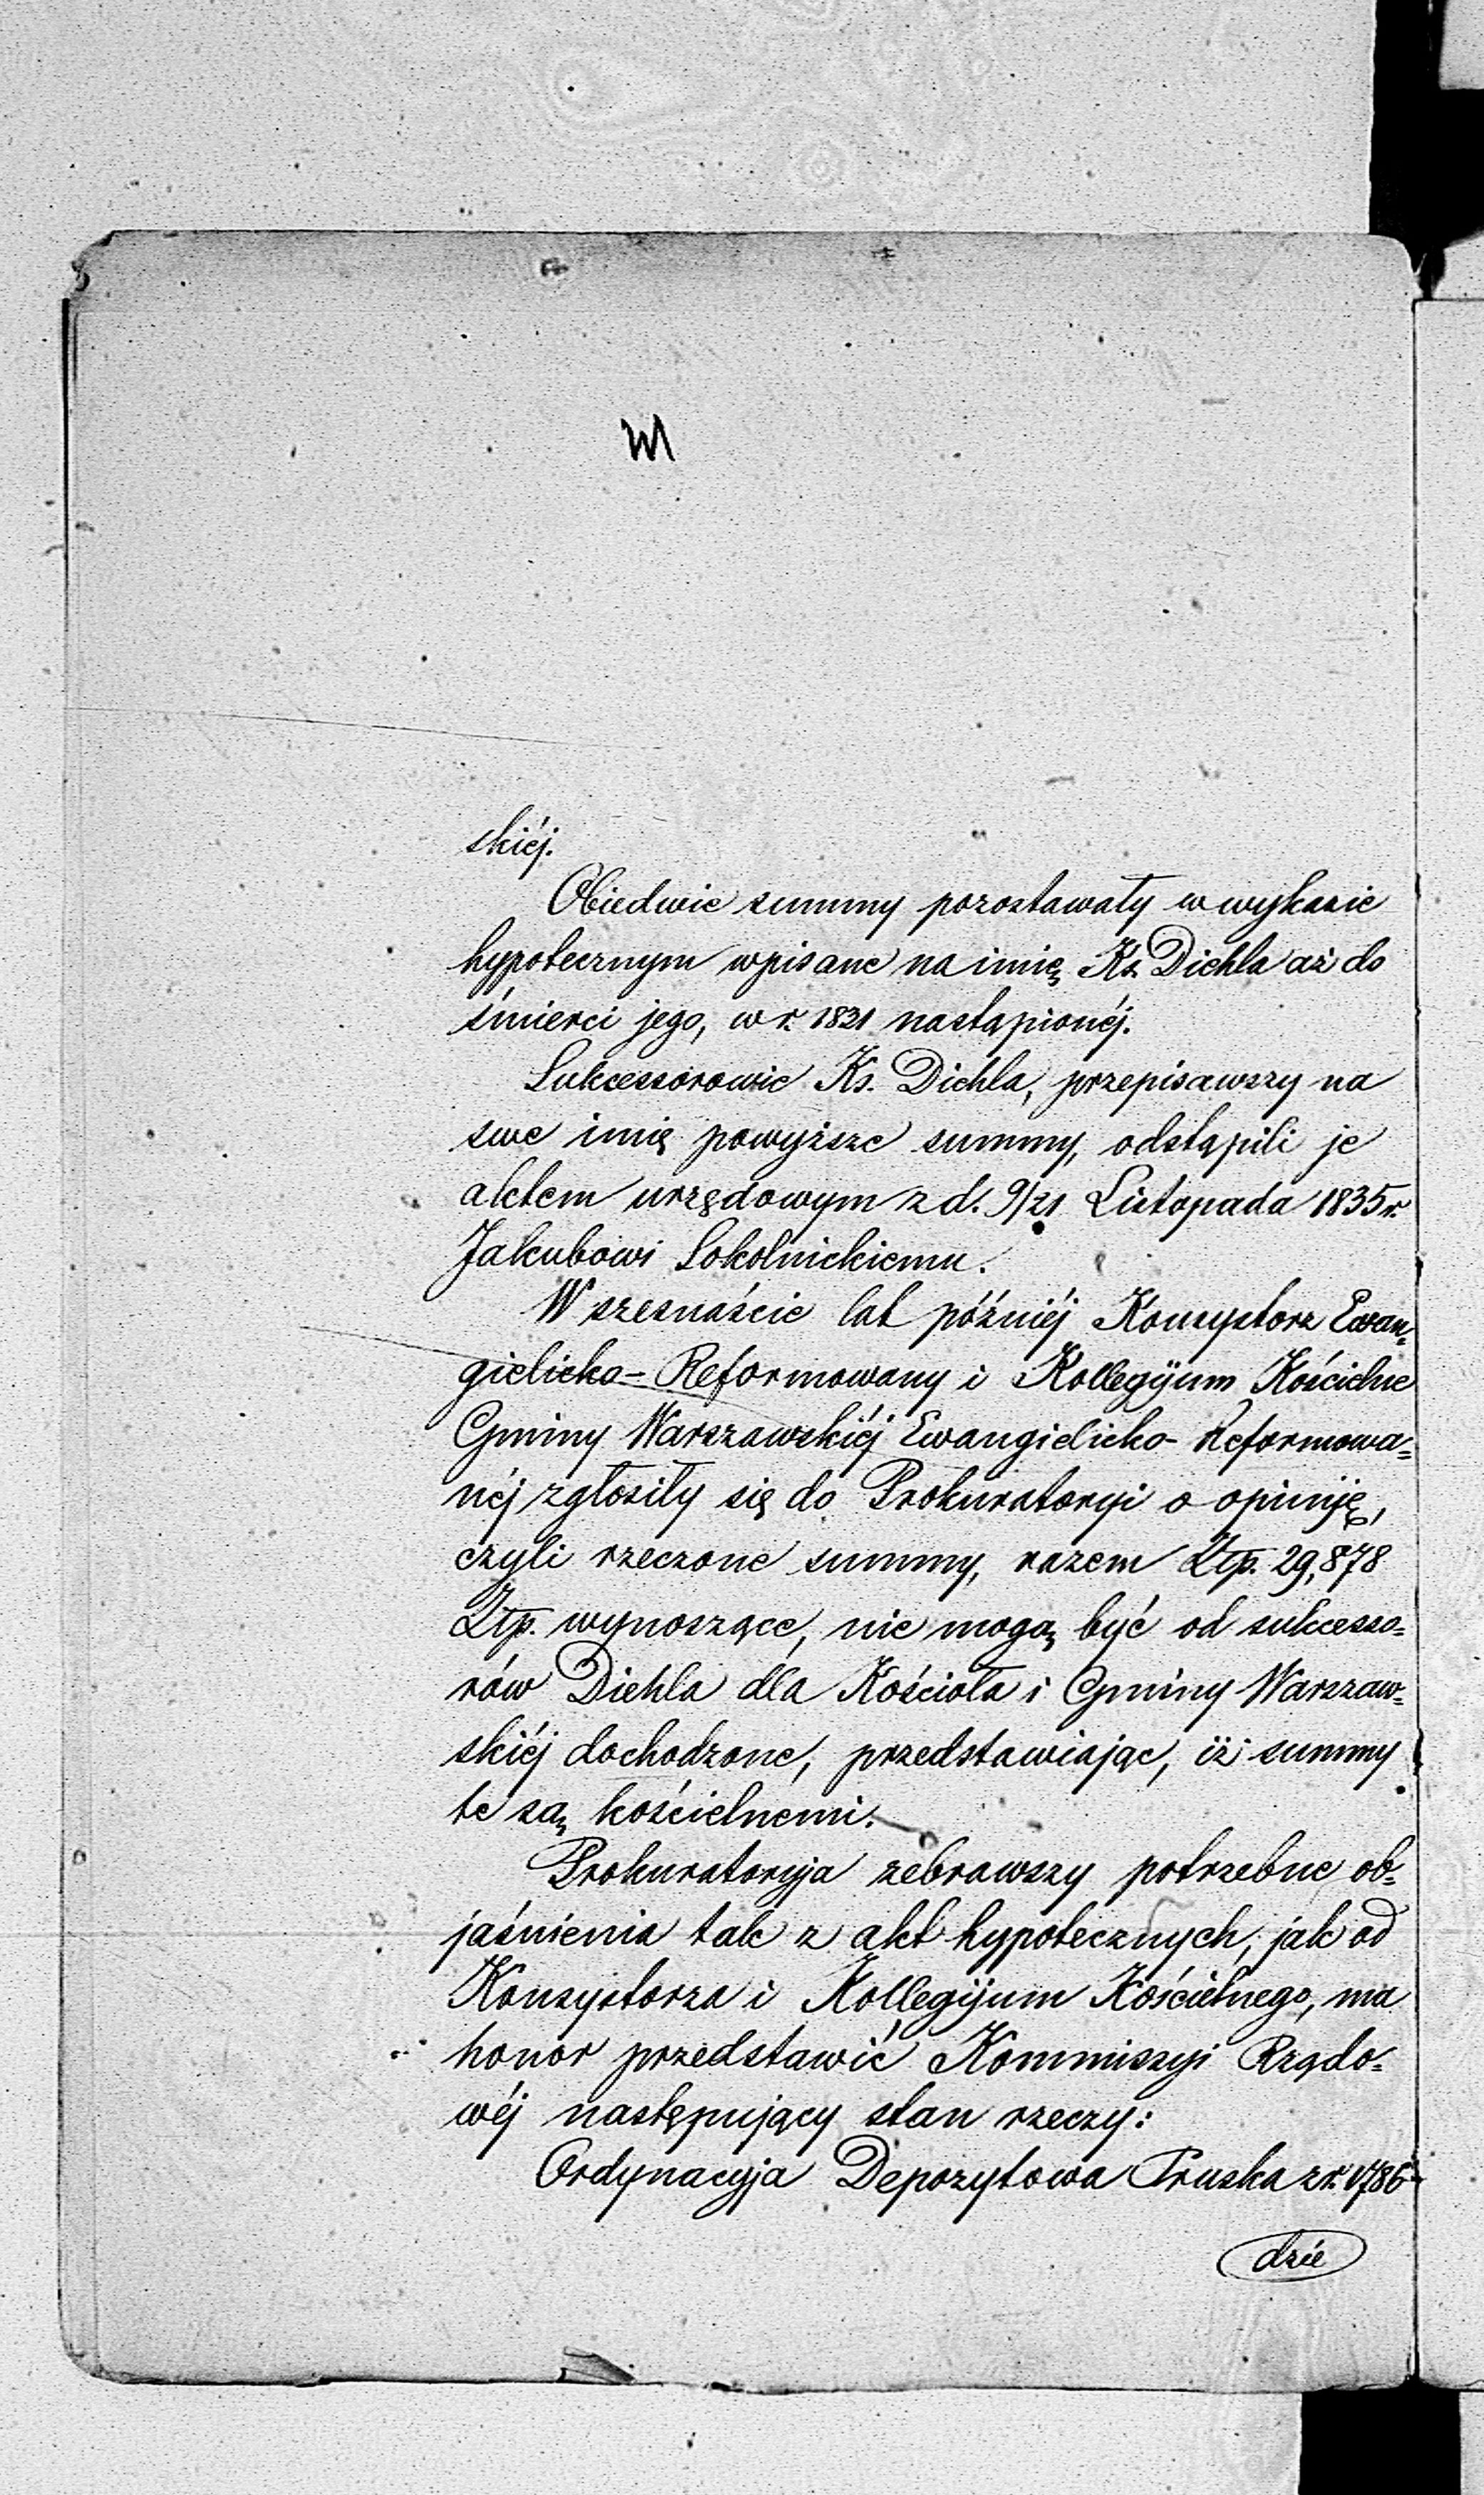 skiéj.
Obiedwie summy pozostawały w wykazie
hypotecznym wpisane na imię Ks. Diehla aż do
śmierci jego, w r. 1821 nastąpionéj.
Sukcessorowie Ks. Diehla, przepisawszy na
swe imię powyższe summy, odstąpili je
aktem urzędowym z d. 9/21 Listopada 1835 r.
Jakubowi Sokolnickiemu.
W szesnaście lat późniéj Konsystorz Ewan=
gielicko-Reformowany i Kollegijum Kościelne
Gminy Warszawskiéj Ewangielicko-Reformowa=
néj zgłosiły się do Prokuratoryi o opiniję,
czyli rzeczone summy, razem Złp. 29,878
Złp. wynoszące, nie mogą być od sukcesso=
rów Diehla dla Kościoła i Gminy Warszaw=
skiéj dochodzone, przedstawiając, iż summy
te są kościelnemi.
Prokuratoryja zebrawszy potrzebne ob=
jaśnienia tak z akt hypotecznych, jak od
Konsystorza i Kollegijum Kościelnego, ma
honor przedstawić Kommissyi Rządo=
wéj następujący stan rzeczy:
Ordynacyja Depozytowa Pruska z r. 1786
dzie